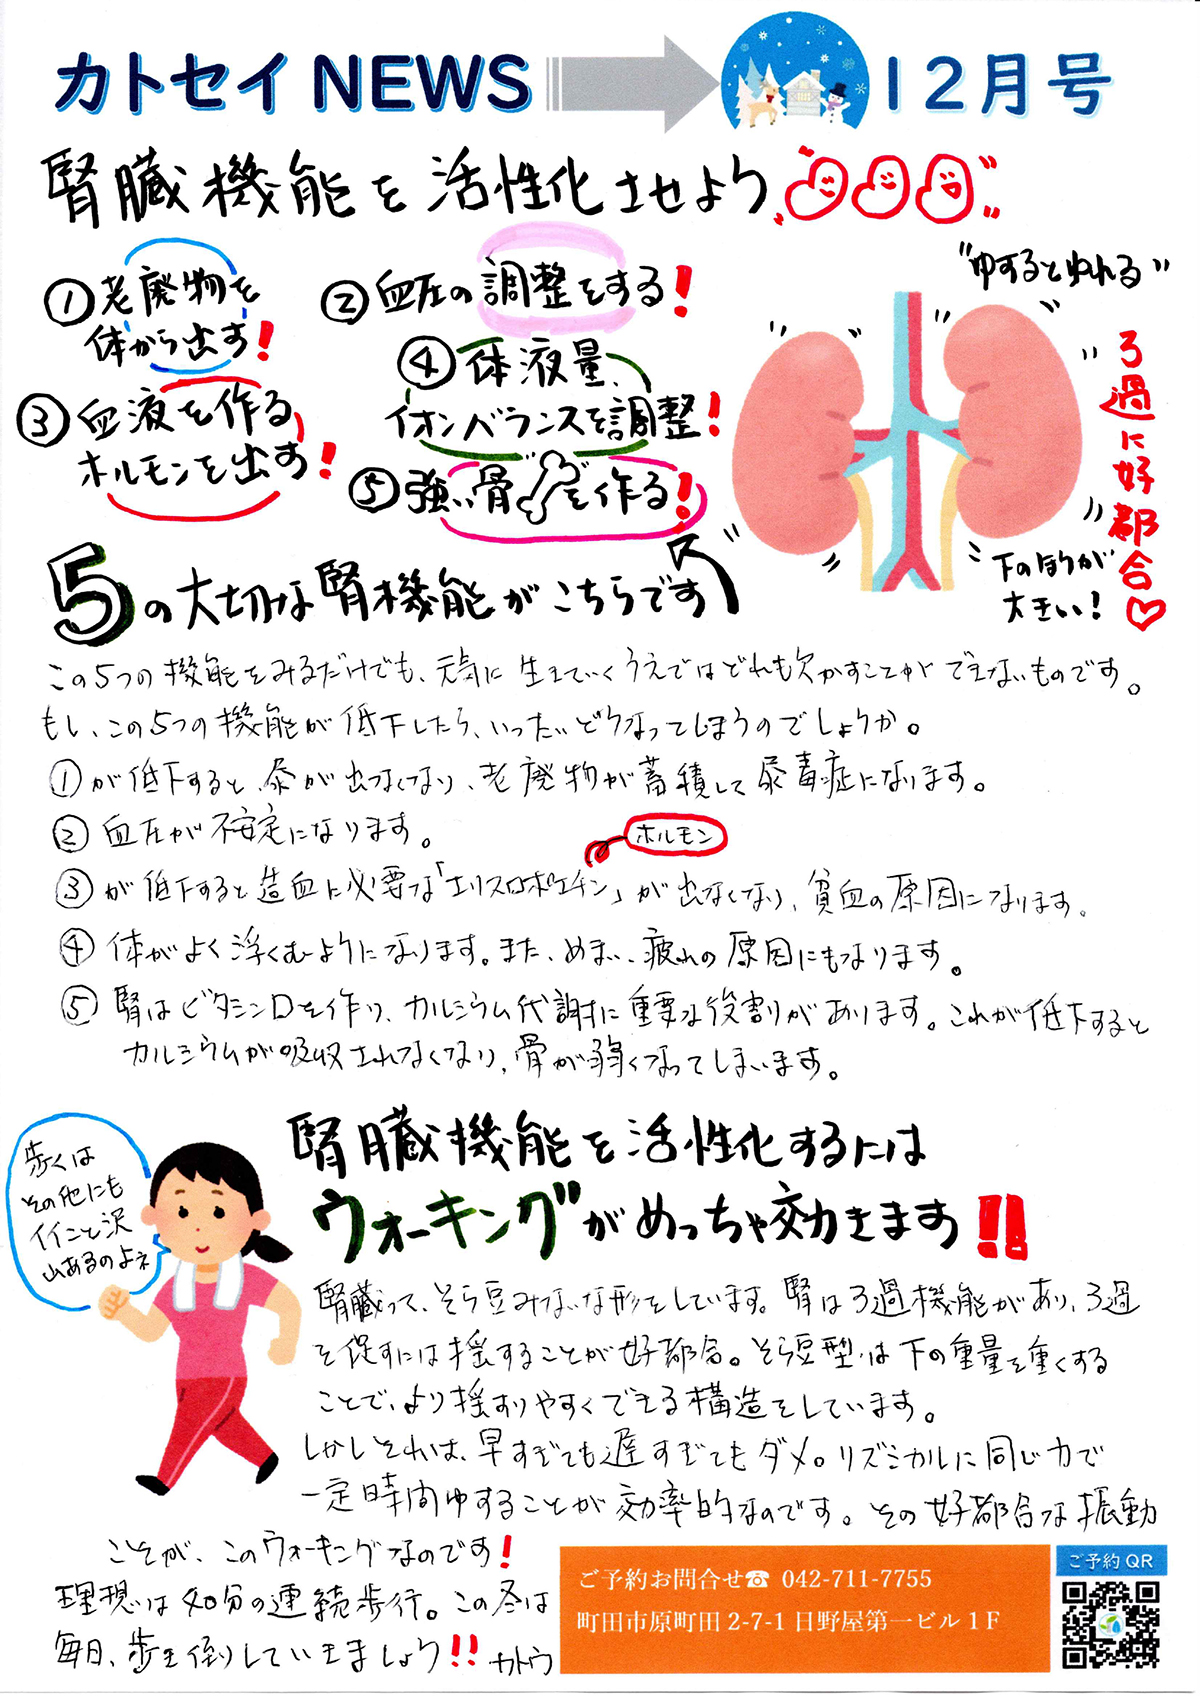 カトセイNEWS 12月号
腎臓機能を活性化させよう
①老廃物を
体から出す!
②血圧の調整をする!
③血液を作る
ホルモンを出す!
④体液量、
イオンバランスを調整!
⑤強い骨を作る!
"ゆするとゆれる"
ろ過に好都合♡
下のほうが
大きい!
5の大切な腎機能がこちらです
この5つの機能をみるだけでも、元気に生きていくうえではどれも欠かすことができないものです。
もし、この5つの機能が低下したら、いったいどうなってしまうのでしょうか。
①が低下すると、尿が出なくなり、老廃物が蓄積して尿毒症になります。
②血圧が不安定になります。
ホルモン
③が低下すると造血に必要な「エリスロポエチン」が出なくなり、貧血の原因になります。
④体がよく浮くむようになります。また、めまい、疲れの原因にもなります。
⑤腎はビタミンDを作り、カルシウム代謝に重要な役割があります。これが低下すると
カルシウムが吸収されなくなり、骨が弱くなってしまいます。
歩くは
その他にも
イイこと沢
山あるのよネ
腎臓機能を活性化するには
ウォーキングがめっちゃ効きます!!
腎臓って、そら豆みたいな形をしています。腎はろ過機能があり、ろ過
を促すには揺することが好都合。そら豆型は下の重量を重くする
ことで、より揺すりやすくできる構造をしています。
しかしそれは、早すぎても遅すぎてもダメ。リズミカルに同じ力で
一定時間ゆすることが効率的なのです。その好都合な振動
こそが、このウォーキングなのです!
理想は40分の連続歩行。この冬は
毎日、歩き倒していきましょう!! カトウ
ご予約お問合せ☎ 042-711-7755
町田市原町田2-7-1日野屋第一ビル1F
ご予約QR